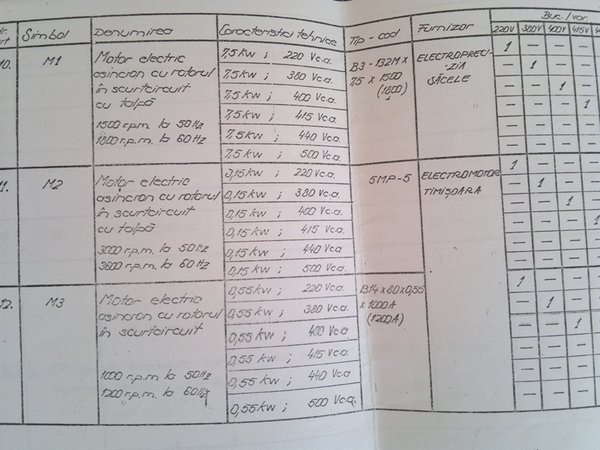 Simbol Denumirea Caracteristici tehnice Tip - cod Furnizor Buc./var.
220V 380V 400V 415V
10. M1 Motor electric
asincron cu rotorul
în scurtcircuit
cu talpă
1500 r.p.m. la 50Hz
1800 r.p.m. la 60Hz
7,5 kw ; 220 Vc.a.
7,5 kw ; 380 Vc.a.
7,5 kw ; 400 Vc.a.
7,5 kw ; 415 Vc.a.
7,5 kw ; 440 Vc.a.
7,5 kw ; 500 Vc.a.
B3 - 132M x
7,5 x 1500
(1800)
ELECTROPRECI-
ZIA
SĂCELE
1 — — —
— 1 — —
— — 1 —
— — — 1
— — — —
— — — —
11. M2 Motor electric
asincron cu rotorul
în scurtcircuit
cu talpă
3000 r.p.m. la 50Hz
3600 r.p.m. la 60Hz
0,15 kw ; 220 Vc.a.
0,15 kw ; 380 Vc.a.
0,15 kw ; 400 Vc.a.
0,15 kw ; 415 Vc.a.
0,15 kw ; 440 Vc.a.
0,15 kw ; 500 Vc.a.
5MP-5
ELECTROMOTOR
TIMIŞOARA
1 — — —
— 1 — —
— — 1 —
— — — 1
— — — —
— — — —
12. M3 Motor electric
asincron cu rotorul
în scurtcircuit
1000 r.p.m. la 50Hz
1200 r.p.m. la 60Hz
0,55 kw ; 220 Vc.a.
0,55 kw ; 380 Vc.a.
0,55 kw ; 400 Vc.a.
0,55 kw ; 415 Vc.a.
0,55 kw ; 440 Vc.a.
0,55 kw ; 500 Vc.a.
B14 x 80 x 0,55
x 1000A
(1200A)
1 — — —
— 1 — —
— — 1 —
— — — —
— — — —
— — — —